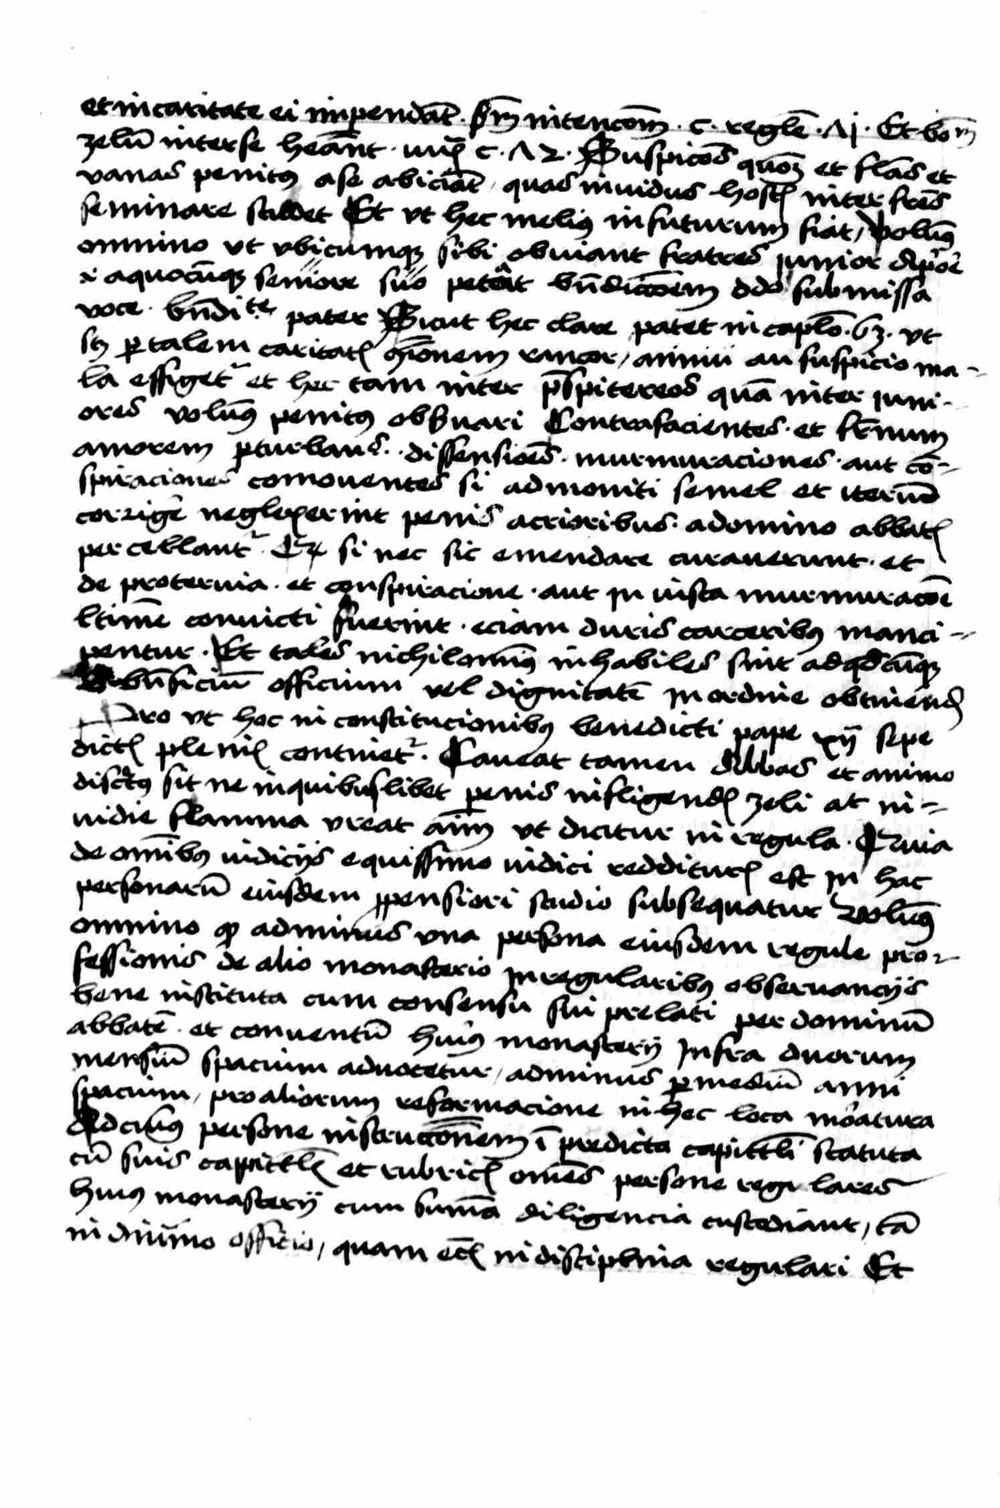 et in caritate ei impendāt . scdm̄ intencōm̄ . c . regl̄e . 71 . Et bom̄
zelū inter se heānt . c . 72 . Suspicōēs quoqȝ et fl̄as et
vanas penitus a se abiciāt / quas inuidus hostis inter fr̄es
seminare studet Et vt hec melius in futurum fiat / volumꝰ
omnino vt vbicumqȝ sibi obuiant fratres junior
a quocūqȝ seniore suo petāt bn̄diccōem submissa
voce . bn̄dicite pater Sicut hec clare patet in caplō . 63 . vt
ꝑ talem caritatis rancor / animi an suspicio ma-
la effugetᷣ et hec tam inter pr̄spitereos quā inter juni-
ores volumꝰ penitus obseruari Contrafacientes . et fr̄num
amorem ꝑturbantes . dissensiōēs . murmuraciones . aut cō-
spiraciones comouentes si admoniti semel et iterum
corrigere neglexerint penis acrioribus a domino abbate
percellantᷣ . si nec sic emendare curauerunt . et
de proteruia . et conspiracione . aut in iusta murmuracōē
ltime convicti fuerint . eciam duris carceribus manci-
pentur . Et tales nichilominus inhabiles sint ad qdcūqȝ
bn̄ficium officium vel dignitatē in ordine obtinend
Pro vt hoc in constitucionibꝰ benedicti pape xij sepe
dicti plenius continetᷣ . Caueat tamen abbas et animo
discretus sit ne in quibuslibet penis infligendis zeli at in-
uidie flamma vreat aīm vt dicitur in regula . Quia
de om̄ibꝰ iudicijs equissimo iudici redditurus est in hac
personarū eiusdem ꝓpensiori studio subsequatur volumꝰ
omnino ꝙ ad minus vna persona eiusdem regule pro-
fessionis de alio monasterio in regularibus obseruancijs
bene instituta cum consensu sui prelati per dominū
abbatē . et conuentū huius monasterij infra duorum
mensiū spacium aduocetur / ad minus ꝑ mediū anni
spacium / pro aliorum reformacione in hec loca mōatura
Ad cuius persone instruccōnem ī predicta capittli statuta
cū suis capittlis et rubricis om̄es persone regulares
huius monasterij cum suma diligencia custodiant / tā
in diuino officio / quam ecī in disciplina regulari Et